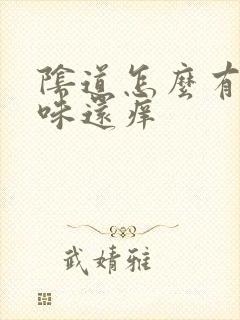 陰道怎麼有
味還痒
武婧雅